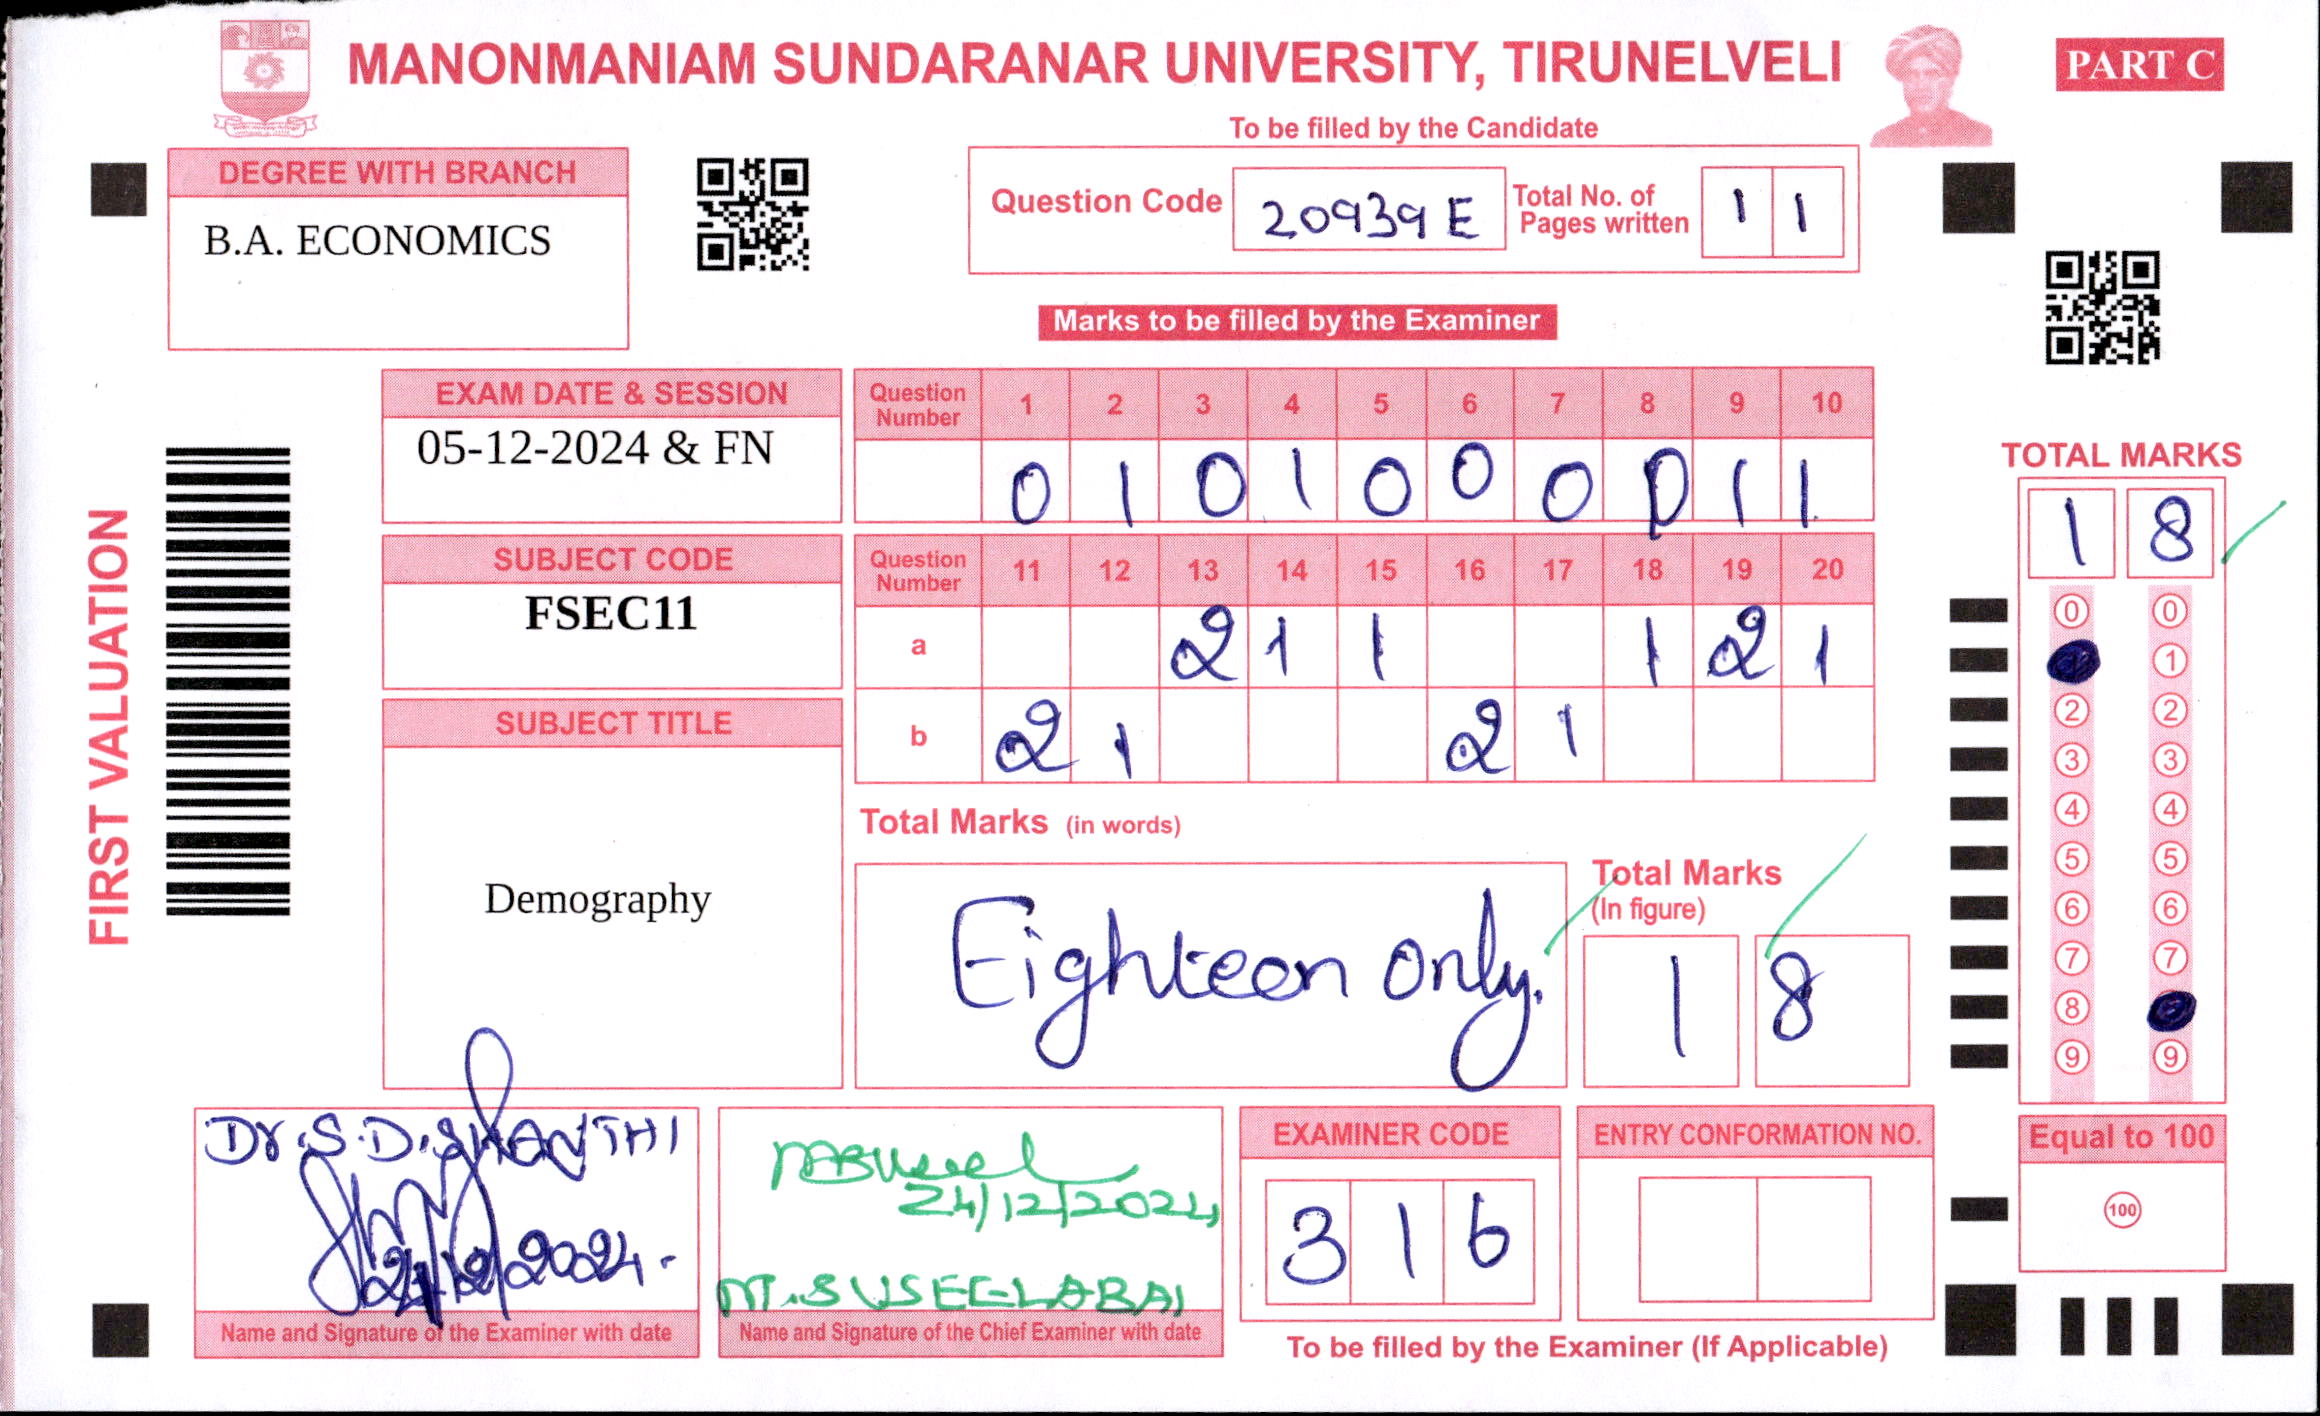 MANONMANIAM SUNDARANAR UNIVERSITY, TIRUNELVELI
PART C
To be filled by the Candidate
DEGREE WITH BRANCH
B.A. ECONOMICS
Question Code 20939E
Total No. of Pages written 1 1
Marks to be filled by the Examiner
FIRST VALUATION
EXAM DATE & SESSION
05-12-2024 & FN
Question Number 1 2 3 4 5 6 7 8 9 10
0 1 0 1 0 0 0 0 1 1
SUBJECT CODE
FSEC11
Question Number 11 12 13 14 15 16 17 18 19 20
a 2 1 1 1 2 1
b 2 1 2 1
SUBJECT TITLE
Demography
Total Marks (in words)
Eighteen only.
Total Marks
(In figure)
1 8
TOTAL MARKS
1 8
0 0
1
2 2
3 3
4 4
5 5
6 6
7 7
8
9 9
Equal to 100
100
Dr. S.D. SHANTHI
2024.
Name and Signature of the Examiner with date
24/12/2024
M. SUSEELABAI
Name and Signature of the Chief Examiner with date
EXAMINER CODE
3 1 6
ENTRY CONFORMATION NO.
To be filled by the Examiner (If Applicable)